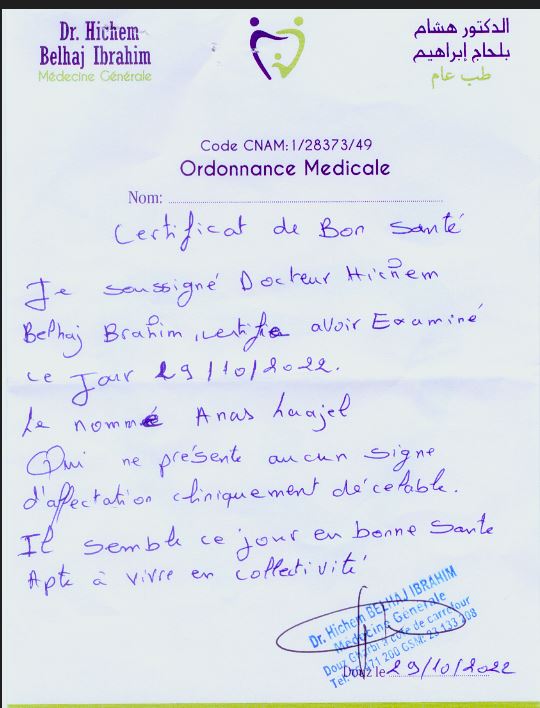 Dr. Hichem
Belhaj Ibrahim
Médecine Générale
الدكتور هشام
بلحاج إبراهيم
طب عام
Code CNAM:1/28373/49
Ordonnance Medicale
Nom:
Certificat de Bon santé
Je soussigné Docteur Hichem
Belhaj Brahim, certifie avoir Examiné
ce Jour 29/10/2022.
Le nommé Anas
Qui ne présente aucun signe
d'affectation cliniquement décelable.
Il semble ce jour en bonne santé
Apte à vivre en collectivité
Dr. Hichem BELHAJ IBRAHIM
Médecine Générale
Douz Gharbi à côté de carrefour
Tél: 471 200 GSM: 23 133
Douz le 29/10/2022